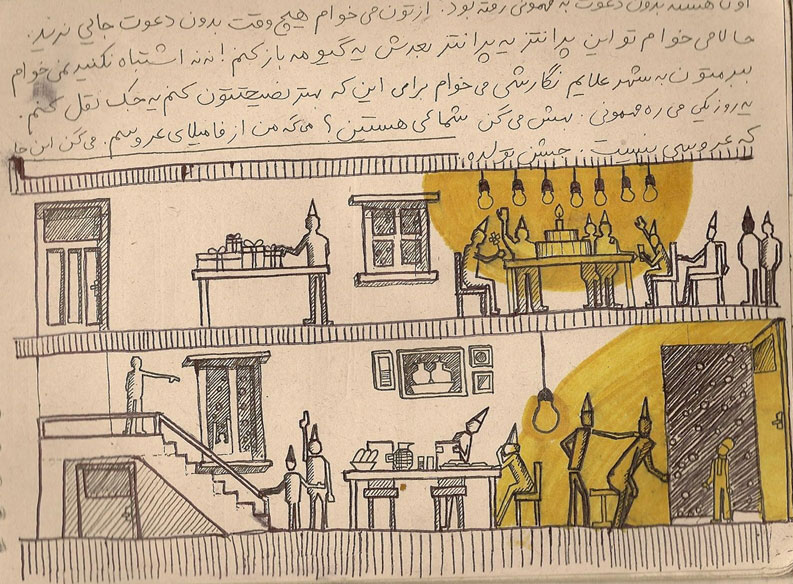 اون هسته بدون دعوت به مهمونی رفته بود. ازتون می خوام هیچ وقت بدون دعوت جایی نرید.
حالا می خوام تو این پرانتز یه پرانتز بعدش یه گیومه باز کنم! نه نه اشتباه نکنید نمی خوام
ببرمتون به شهر علایم نگارشی می خوام برای این که بهتر نصیحتتون کنم یه جک نقل کنم.
یه روز یکی می ره مهمونی. بهش می گن شما کی هستین؟ می گه من از فامیلای عروسم. می گن این جا
که عروسی نیست. جشن تولده.